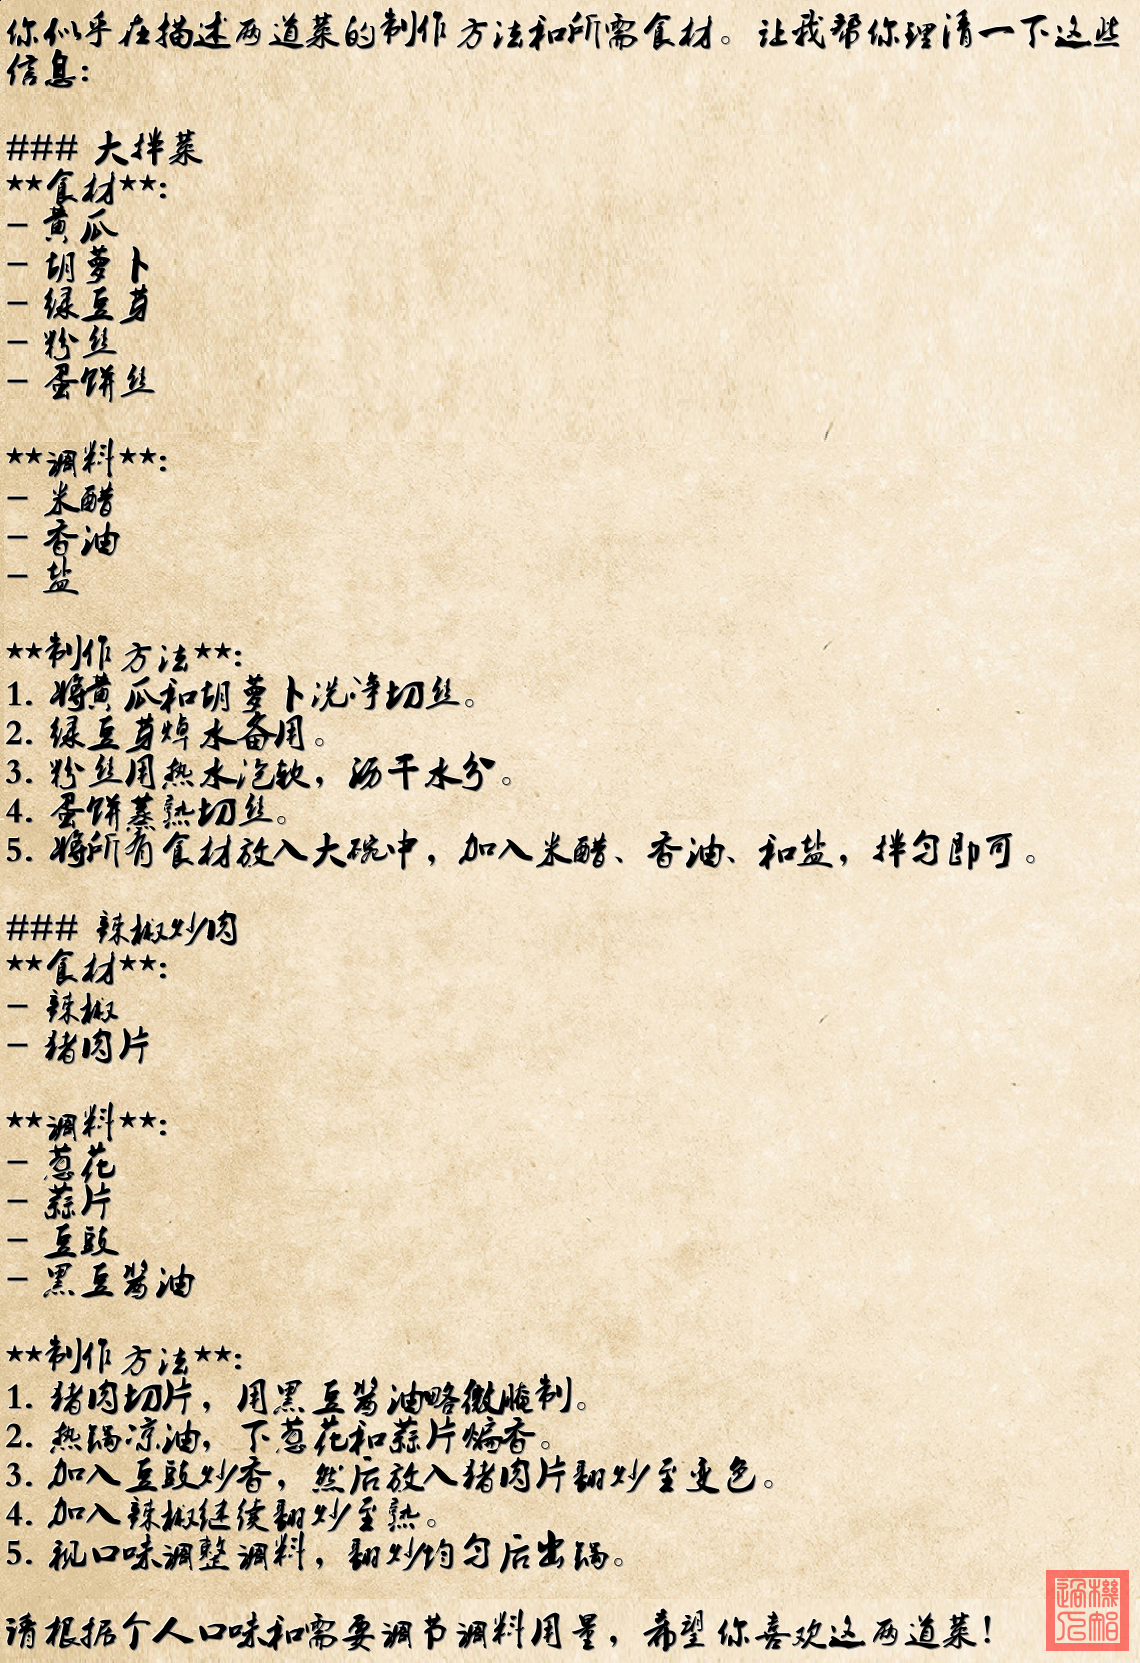 你似乎在描述两道菜的制作方法和所需食材。让我帮你理清一下这些
信息：
### 大拌菜
**食材**：
- 黄瓜
- 胡萝卜
- 绿豆芽
- 粉丝
- 蛋饼丝
**调料**：
- 米醋
- 香油
- 盐
**制作方法**：
1. 将黄瓜和胡萝卜洗净切丝。
2. 绿豆芽焯水备用。
3. 粉丝用热水泡软，沥干水分。
4. 蛋饼蒸熟切丝。
5. 将所有食材放入大碗中，加入米醋、香油、和盐，拌匀即可。
### 辣椒炒肉
**食材**：
- 辣椒
- 猪肉片
**调料**：
- 葱花
- 蒜片
- 豆豉
- 黑豆酱油
**制作方法**：
1. 猪肉切片，用黑豆酱油略微腌制。
2. 热锅凉油，下葱花和蒜片煸香。
3. 加入豆豉炒香，然后放入猪肉片翻炒至变色。
4. 加入辣椒继续翻炒至熟。
5. 视口味调整调料，翻炒均匀后出锅。
请根据个人口味和需要调节调料用量，希望你喜欢这两道菜！